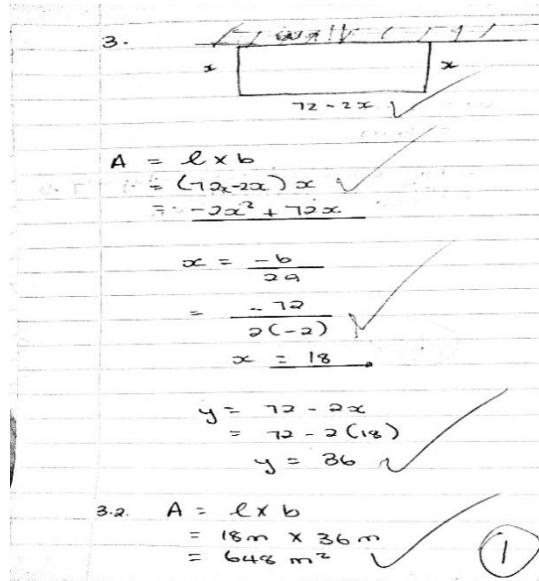 3. wall
x x
72 - 2x
A = l x b
= (72-2x) x
= -2x² + 72x
x = -b
2a
= -72
2(-2)
x = 18
y = 72 - 2x
= 72 - 2(18)
y = 36
3.2. A = l x b
= 18m x 36m
= 648 m²
1